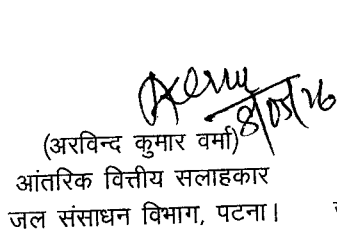 8/05/26
(अरविन्द कुमार वर्मा)
आंतरिक वित्तीय सलाहकार
जल संसाधन विभाग, पटना।